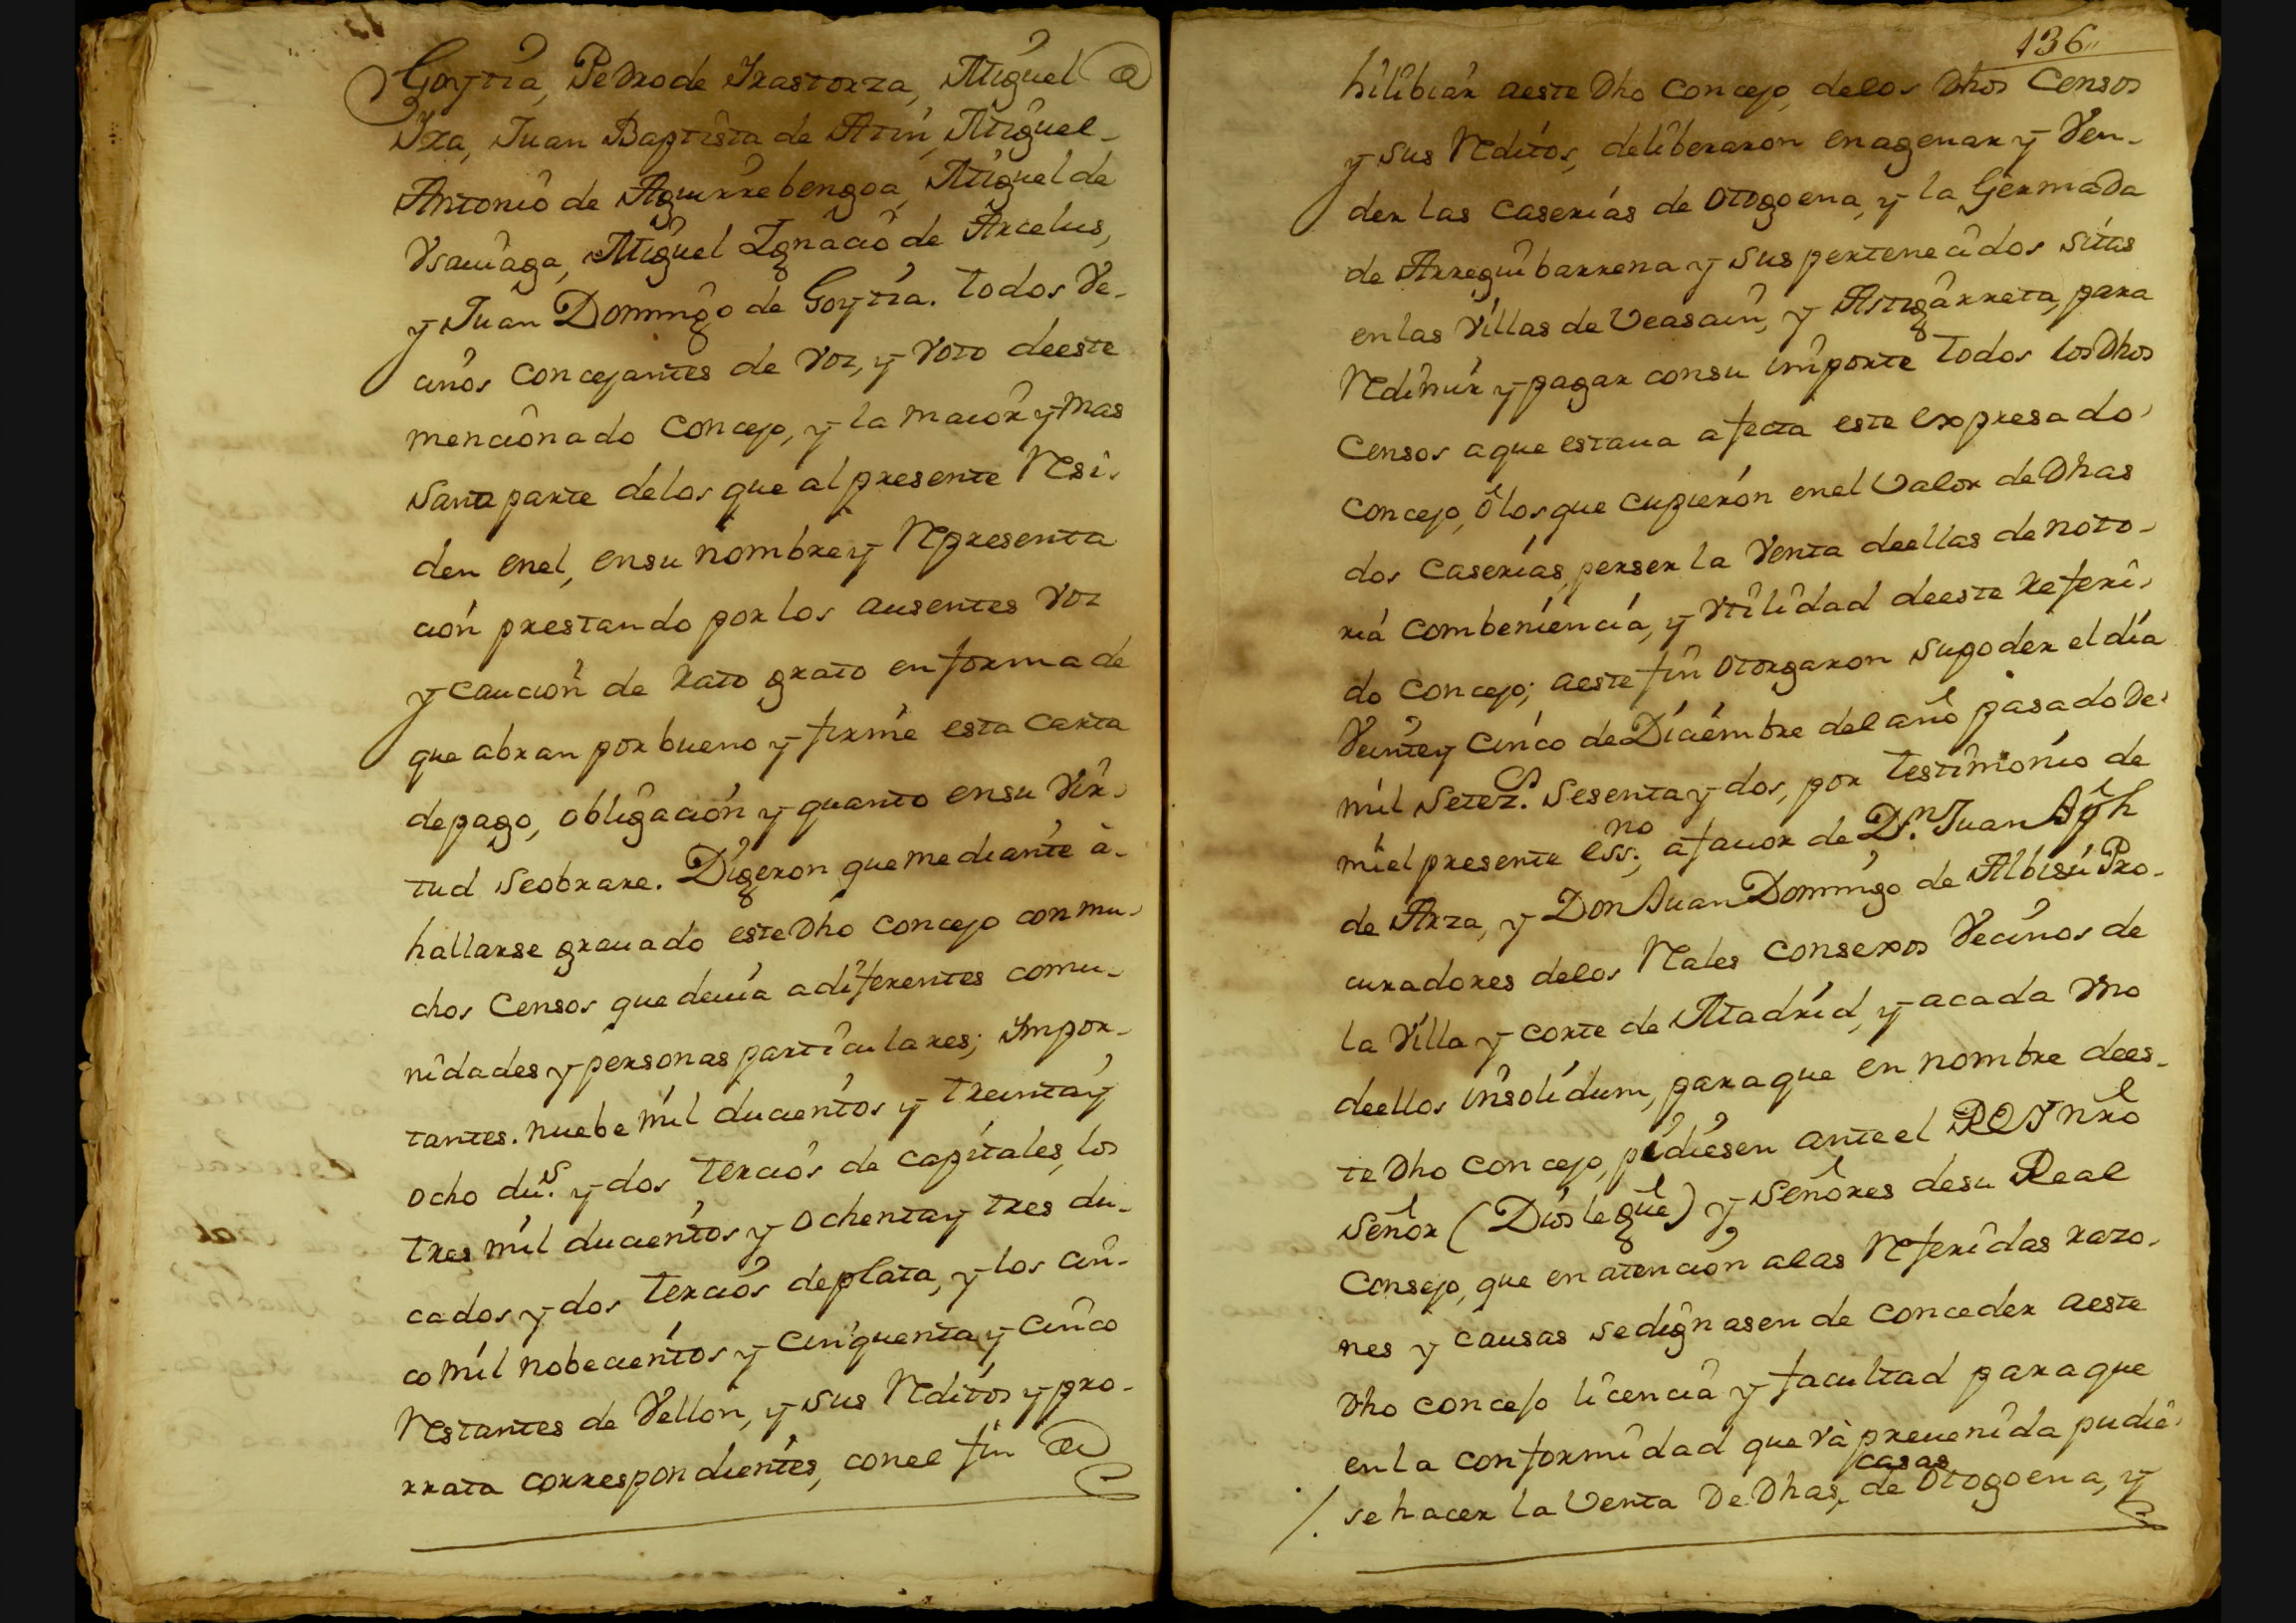 Goytia, Pedro de Yrastorza, Miguel de
Yza, Juan Baptista de Arin, Miguel
Antonio de Aguirrebengoa, Miguel de
Vsauiaga, Miguel Ignacio de Arcelus,
y Juan Domingo de Goytia. todos Ve-
cinos concejantes de voz, y voto deeste
mencionado concejo, y la maior y mas
sana parte delos que al presente Resi-
den enel, ensu nombre y Representa
cion prestando por los ausentes voz
y caucion de rato grato en forma de
que abran por bueno y firme esta carta
depago, obligacion y quanto ensu Vir-
tud seobrare. Digeron que mediante à-
hallarse grauado este Dho concejo con mu-
chos Censos que deuia a diferentes comu-
nidades y personas particulares; Impor-
tantes. nuebe mil ducientos y treinta y
ocho du.s y dos tercios de capitales, los
tres mil ducientos y ochenta y tres du-
cados y dos tercios de plata, y los cin-
co mil nobecientos y cinquenta y cinco
Restantes de Vellon, y sus Reditos y pro-
rrata correspondientes, conel fin de
136,,
hilibiar aeste Dho concejo, delos Dhos Censos
y sus Reditos, deliberaron enagenar y Ven-
der las caserias de Otogoena, y la Germada
de Arreguibarrena y sus pertenecidos sitas
en las Villas de Veasain, y Astigarreta, para
Redimir y pagar consu importe todos los Dhos
Censos aque estaua afecta este expresado
Concejo, ô los que cupieron enel Valor de Dhas
dos caserias, perser la Venta deellas de noto-
ria combeniencia, y vtilidad deeste referi-
do concejo; aeste fin otorgaron supoder el dia
Veinte y cinco de Diciembre del año pasado De
mil setez.s sesenta y dos, por testimonio de
miel presente ess.no, afauor de D.n Juan Aph
de Arza, y Don Juan Domingo de Albisu Pro-
curadores delos Rales Consexos Vecinos de
la Villa y corte de Madrid, y acada vno
deellos insolidum, paraque en nombre dees-
te Dho concejo, pidiesen ante el ROI nro
Señor (Dios le gue) y Señores desu Real
Consejo, que en atencion alas Referidas razo-
nes y causas sedignasen de conceder aeste
Dho concejo licencia y facultad paraque
enla conformidad que và preuenida pudie-
casas
/. se hacer la Venta De Dhas, de Otogoena, y